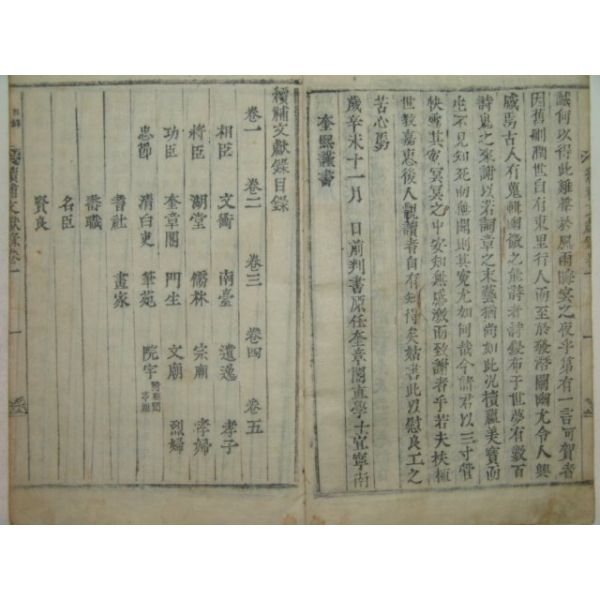 誠何以得此雞聲於風雨晦冥之夜乎第有一言可賀者
因舊刪潤世自有東里行人而至於發潛闡幽尤令人興
感焉古人有蒐輯幽微之能詩者諱鋟布于世夢有數百
詩鬼之來謝以若詞章之末藝猶尚如此況積蘊美實而
屯不見知死而無聞則其寃尤如何哉今諸君以三寸管
快雪其寃冥冥之中安知無感激而致謝者乎若夫扶植
世敎嘉惠後人觀讀者自有知得矣姑書此以慰良工之
苦心焉
歲辛未十一月　日前判書原任奎章閣直學士宜寧南
奎熙謹書
續補文獻錄目錄
卷一　卷二　卷三　卷四　卷五
相臣　文衡　南臺　遺逸　孝子
將臣　湖堂　儒林　宗廟　孝婦
功臣　奎章閣　門生　文廟　烈婦
忠節　清白吏　筆苑　院宇
耆社　畫家
職
名臣
賢良
續補文獻錄卷一　一